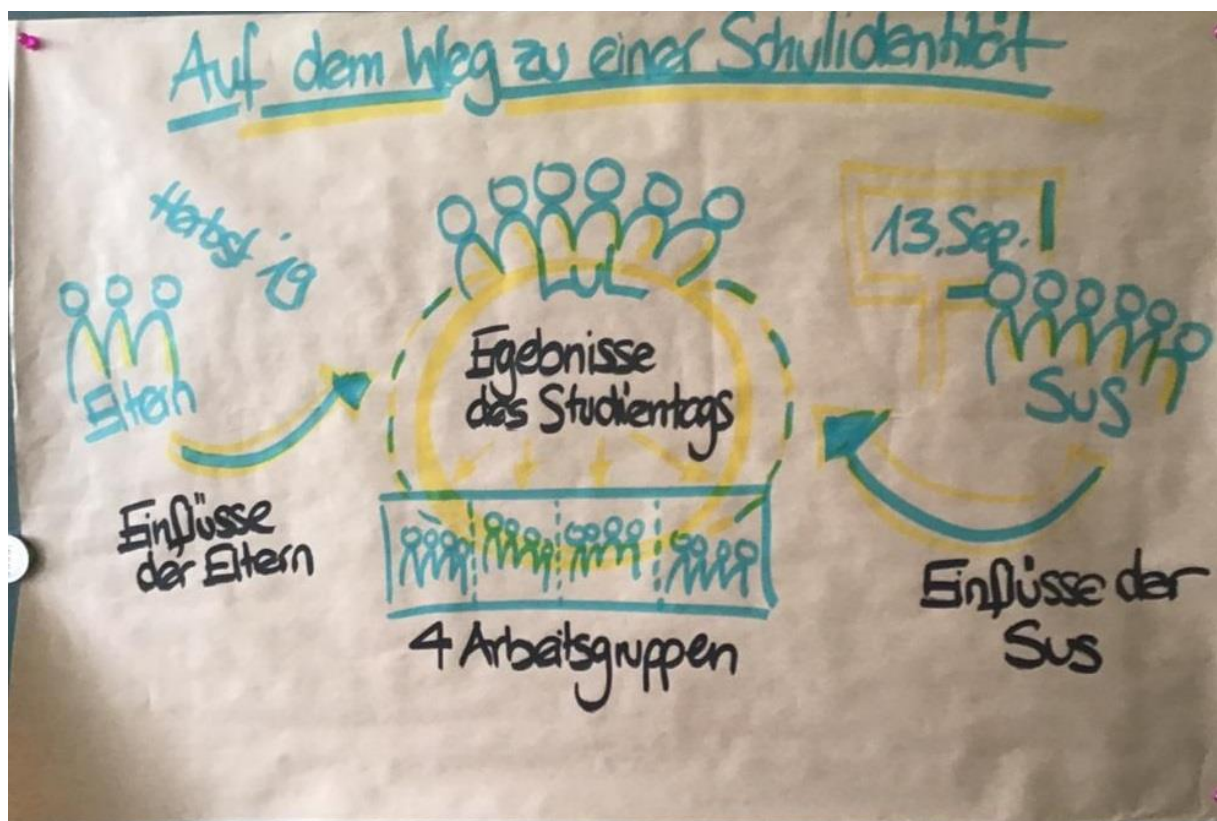 Auf dem Weg zu einer Schulidentität
Herbst '19
Eltern
Einflüsse
der Eltern
LuL
Egebnisse
des Studientags
4 Arbeitsgruppen
13. Sep.
SuS
Einflüsse der
SuS